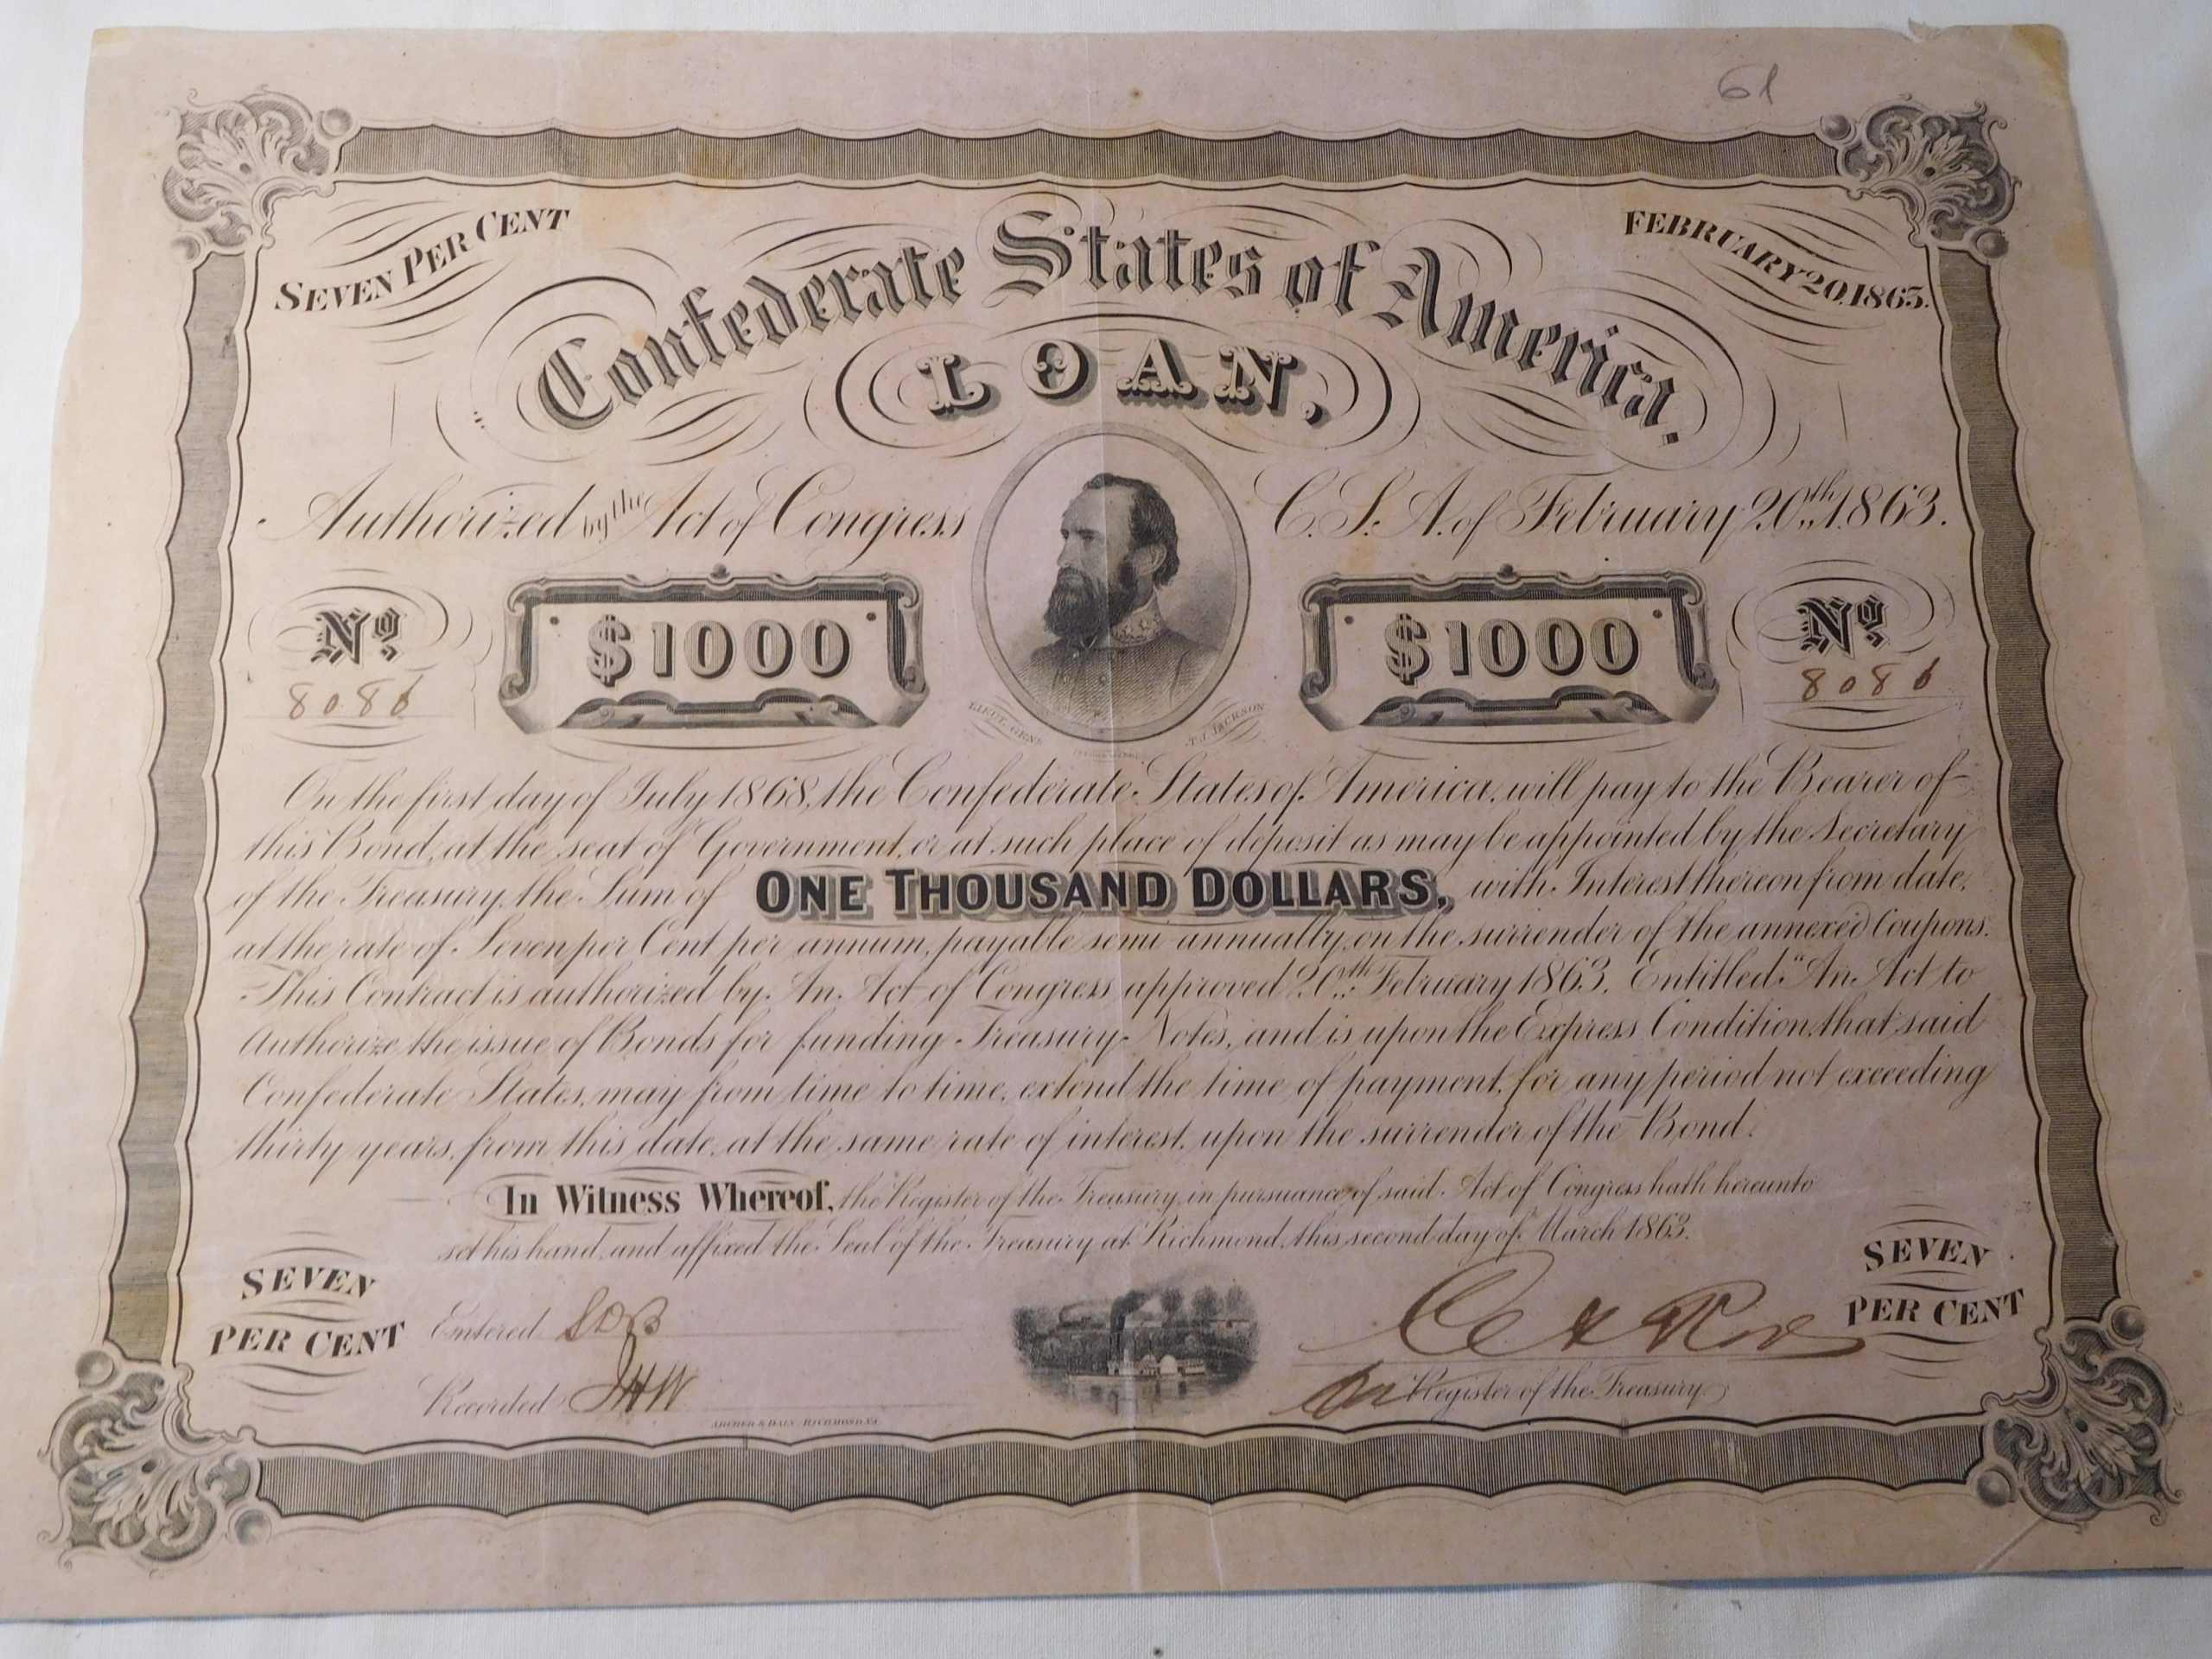 61
SEVEN PER CENT
FEBRUARY 20, 1863.
Confederate States of America.
LOAN,
Authorized by the Act of Congress C.S.A. of February 20th 1863.
No $1000 $1000 No
8086 8086
LIEUT. GENL T.J. JACKSON
On the first day of July 1868, the Confederate States of America, will pay to the Bearer of
this Bond, at the seat of Government, or at such place of deposit as may be appointed by the Secretary
of the Treasury, the Sum of ONE THOUSAND DOLLARS, with Interest thereon from date,
at the rate of Seven per Cent per annum, payable semi annually, on the surrender of the annexed Coupons.
This Contract is authorized by An Act of Congress approved 20th February 1863. Entitled "An Act to
Authorize the issue of Bonds for funding Treasury Notes, and is upon the Express Condition, that said
Confederate States, may from time to time, extend the time of payment, for any period not exceeding
thirty years, from this date, at the same rate of interest, upon the surrender of the Bond.
In Witness Whereof, the Register of the Treasury, in pursuance of said Act of Congress hath hereunto
set his hand, and affixed the Seal of the Treasury at Richmond, this second day of March 1863.
SEVEN
PER CENT
SEVEN
PER CENT
Entered
Recorded JHW
Register of the Treasury
ARCHER & DALY, RICHMOND, VA